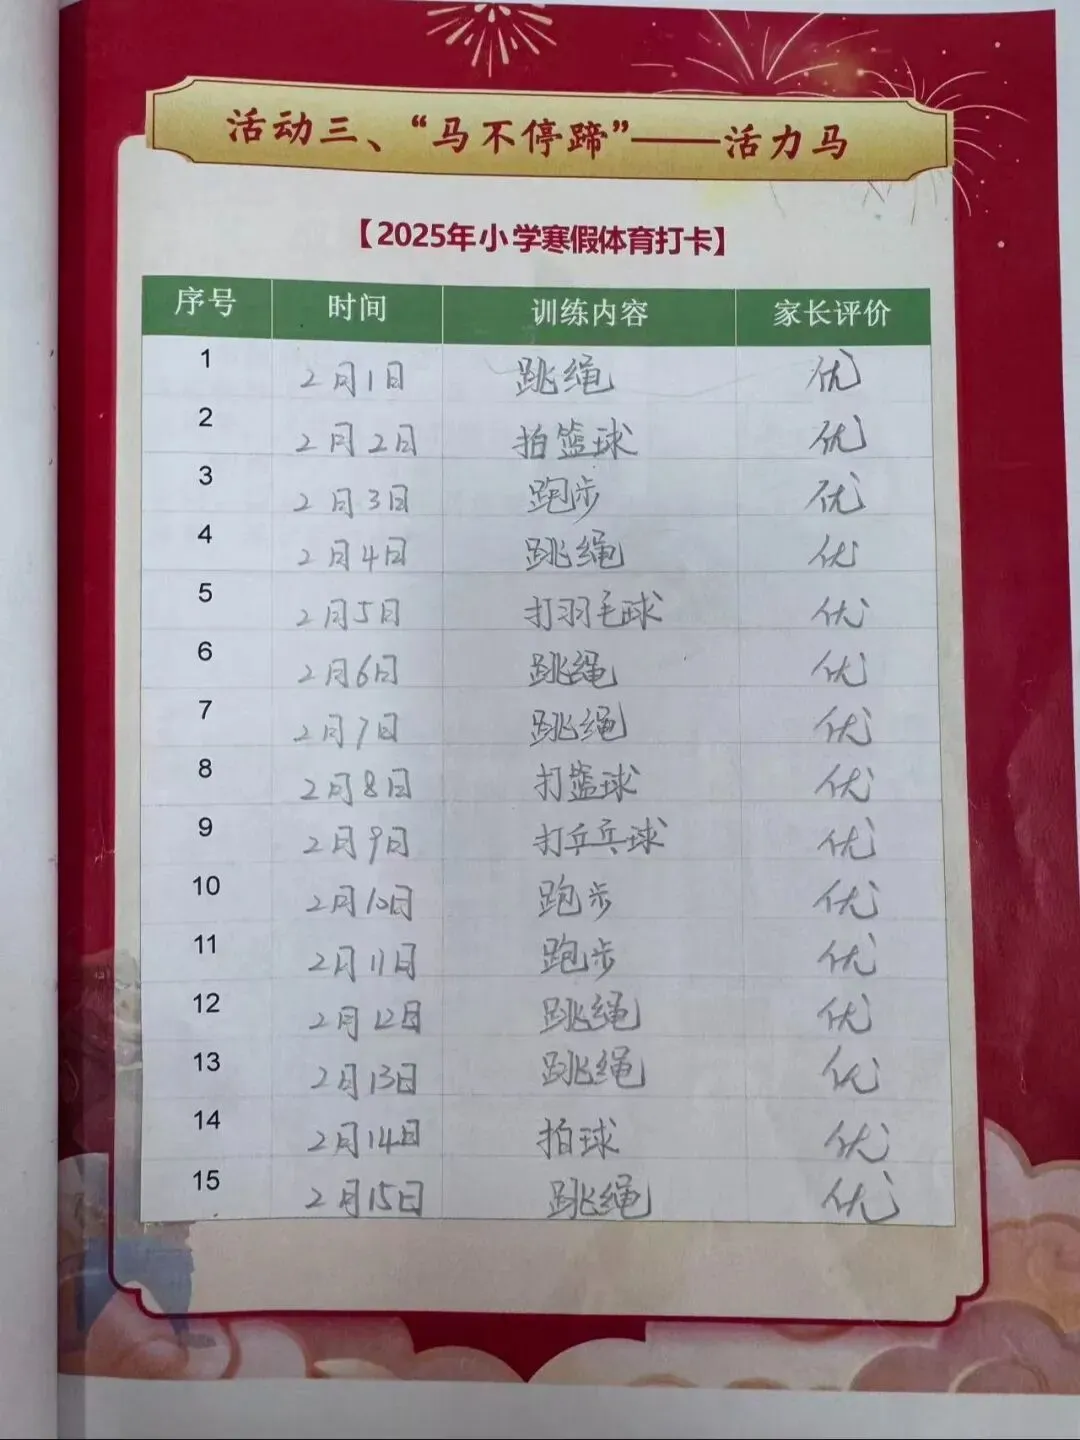 活动三、“马不停蹄”——活力马
【2025年小学寒假体育打卡】
序号 时间 训练内容 家长评价
1 2月1日 跳绳 优
2 2月2日 拍篮球 优
3 2月3日 跑步 优
4 2月4日 跳绳 优
5 2月5日 打羽毛球 优
6 2月6日 跳绳 优
7 2月7日 跳绳 优
8 2月8日 打篮球 优
9 2月9日 打乒乓球 优
10 2月10日 跑步 优
11 2月11日 跑步 优
12 2月12日 跳绳 优
13 2月13日 跳绳 优
14 2月14日 拍球 优
15 2月15日 跳绳 优